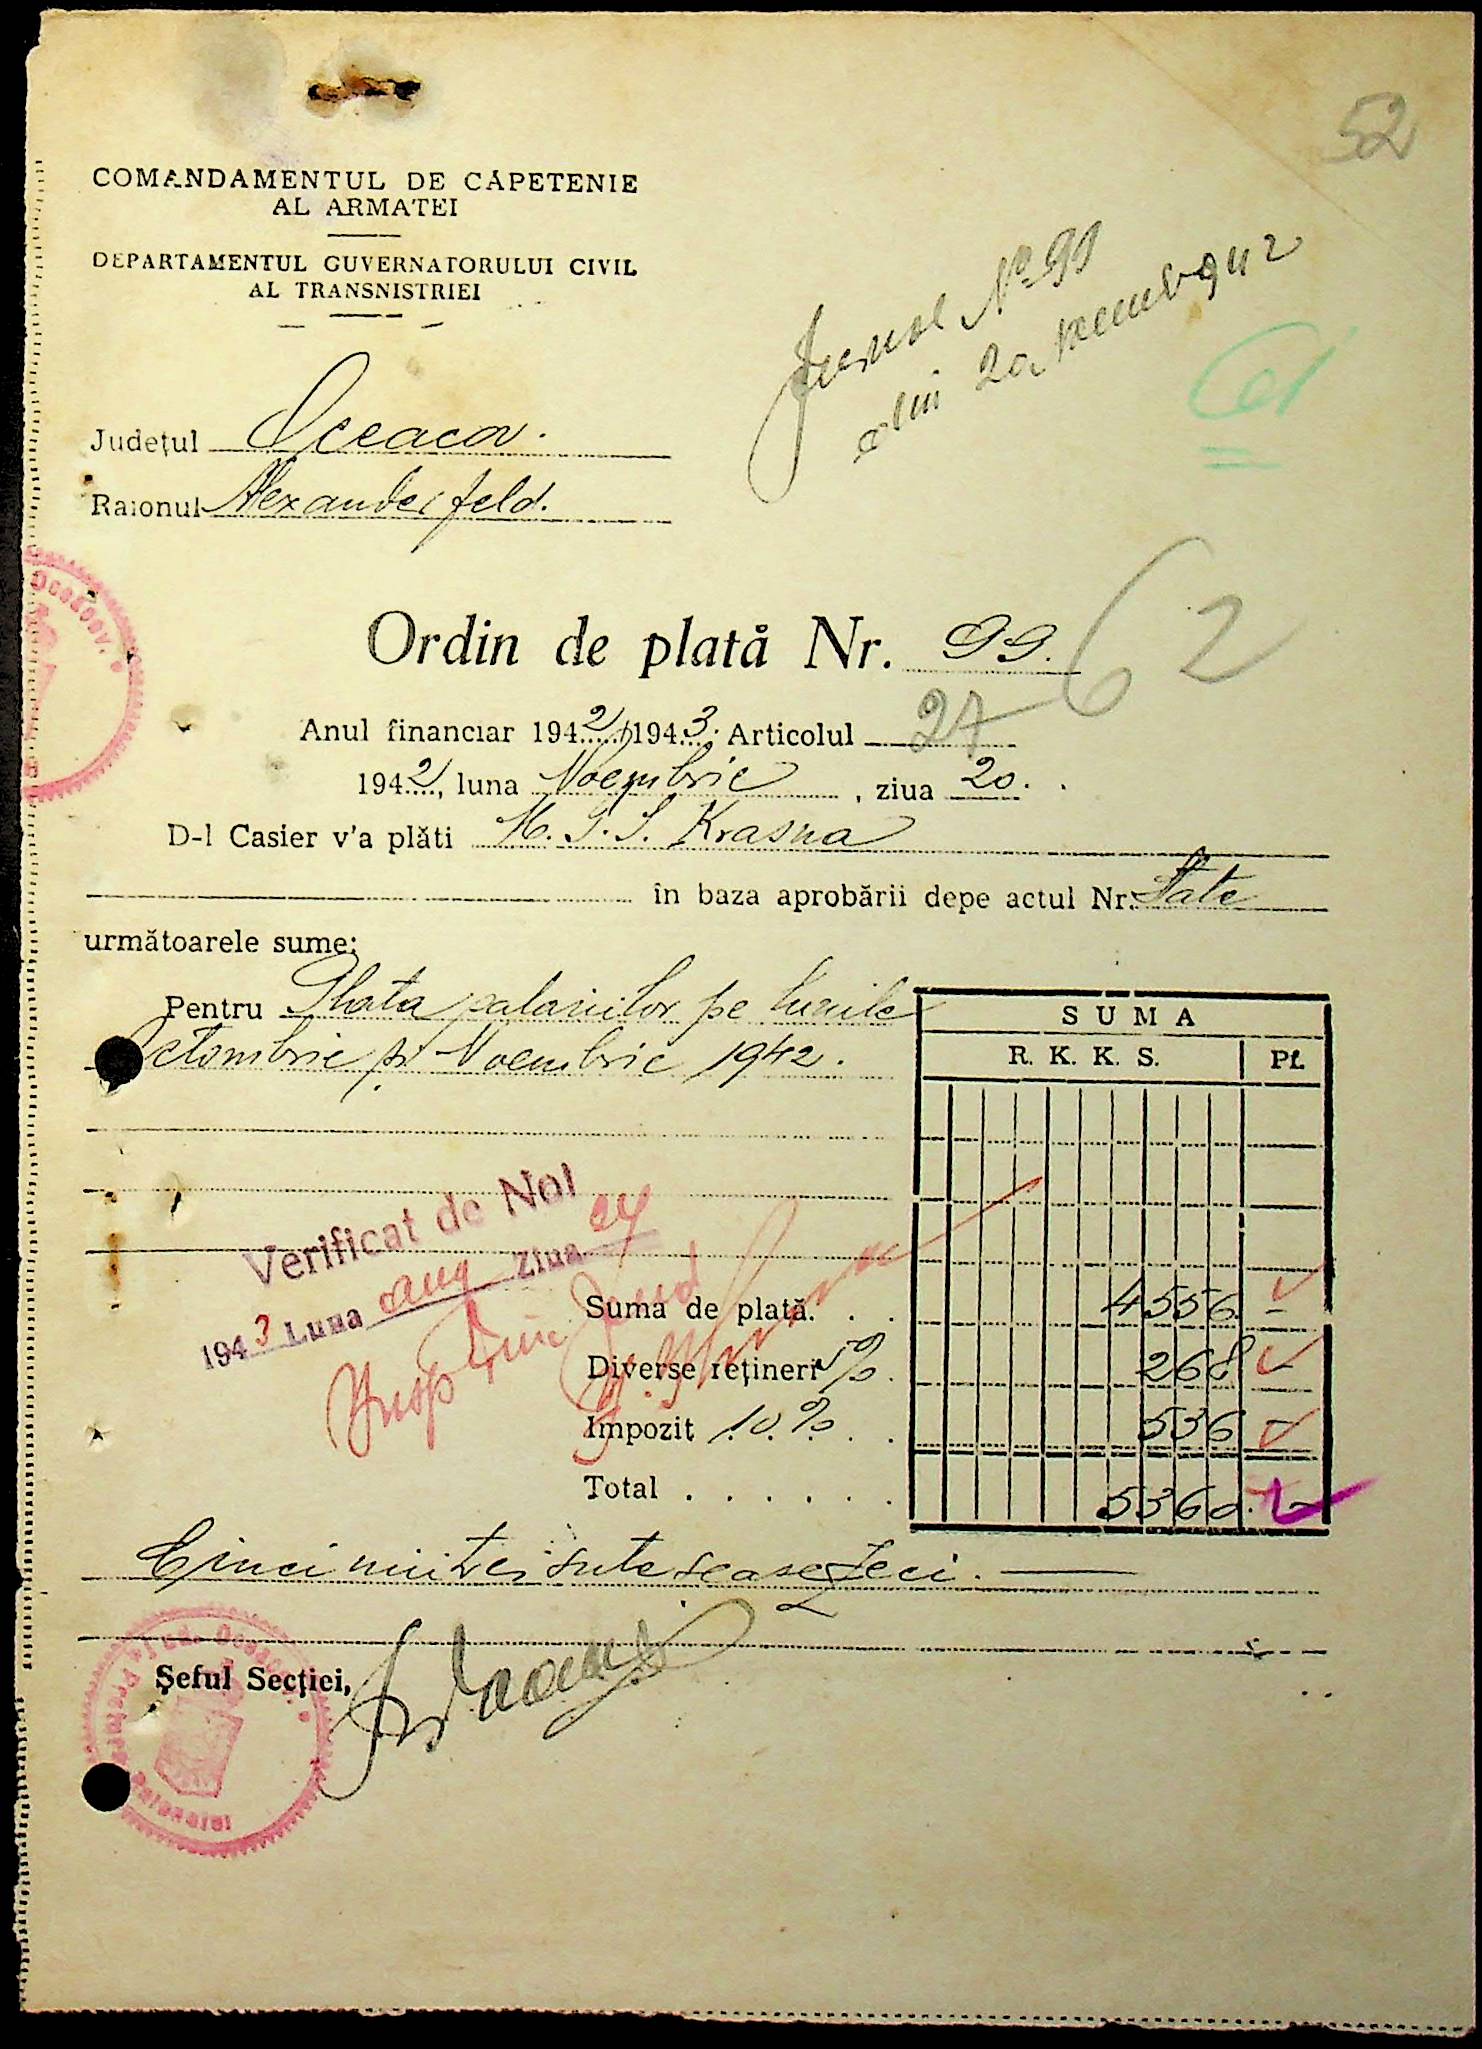 52
COMANDAMENTUL DE CAPETENIE
AL ARMATEI
DEPARTAMENTUL GUVERNATORULUI CIVIL
AL TRANSNISTRIEI
Jurnal Nº 91
din 20 Noembr 942
Județul Oceacov.
Raionul Alexanderfeld.
Ordin de plată Nr. 99.
62
Anul financiar 1942/1943. Articolul 27
1942, luna Noembrie, ziua 20.
D-l Casier v'a plăti M. T. S. Krasna
în baza aprobării depe actul Nr. State
următoarele sume:
Pentru Plata salariilor pe lunile
Octombrie și Noembrie 1942.
SUMA
R. K. K. S. Pf.
Verificat de Noi
1943 Luna aug Ziua 24
Suma de plată. . . 4556 -
Diverse rețineri 5% . 268 -
Impozit 10% . . 536 -
Total . . . . . . 5360. -
Cinci mii trei sute șease zeci.
Șeful Secției,
Jud. Oceacov
Pretura Raionului